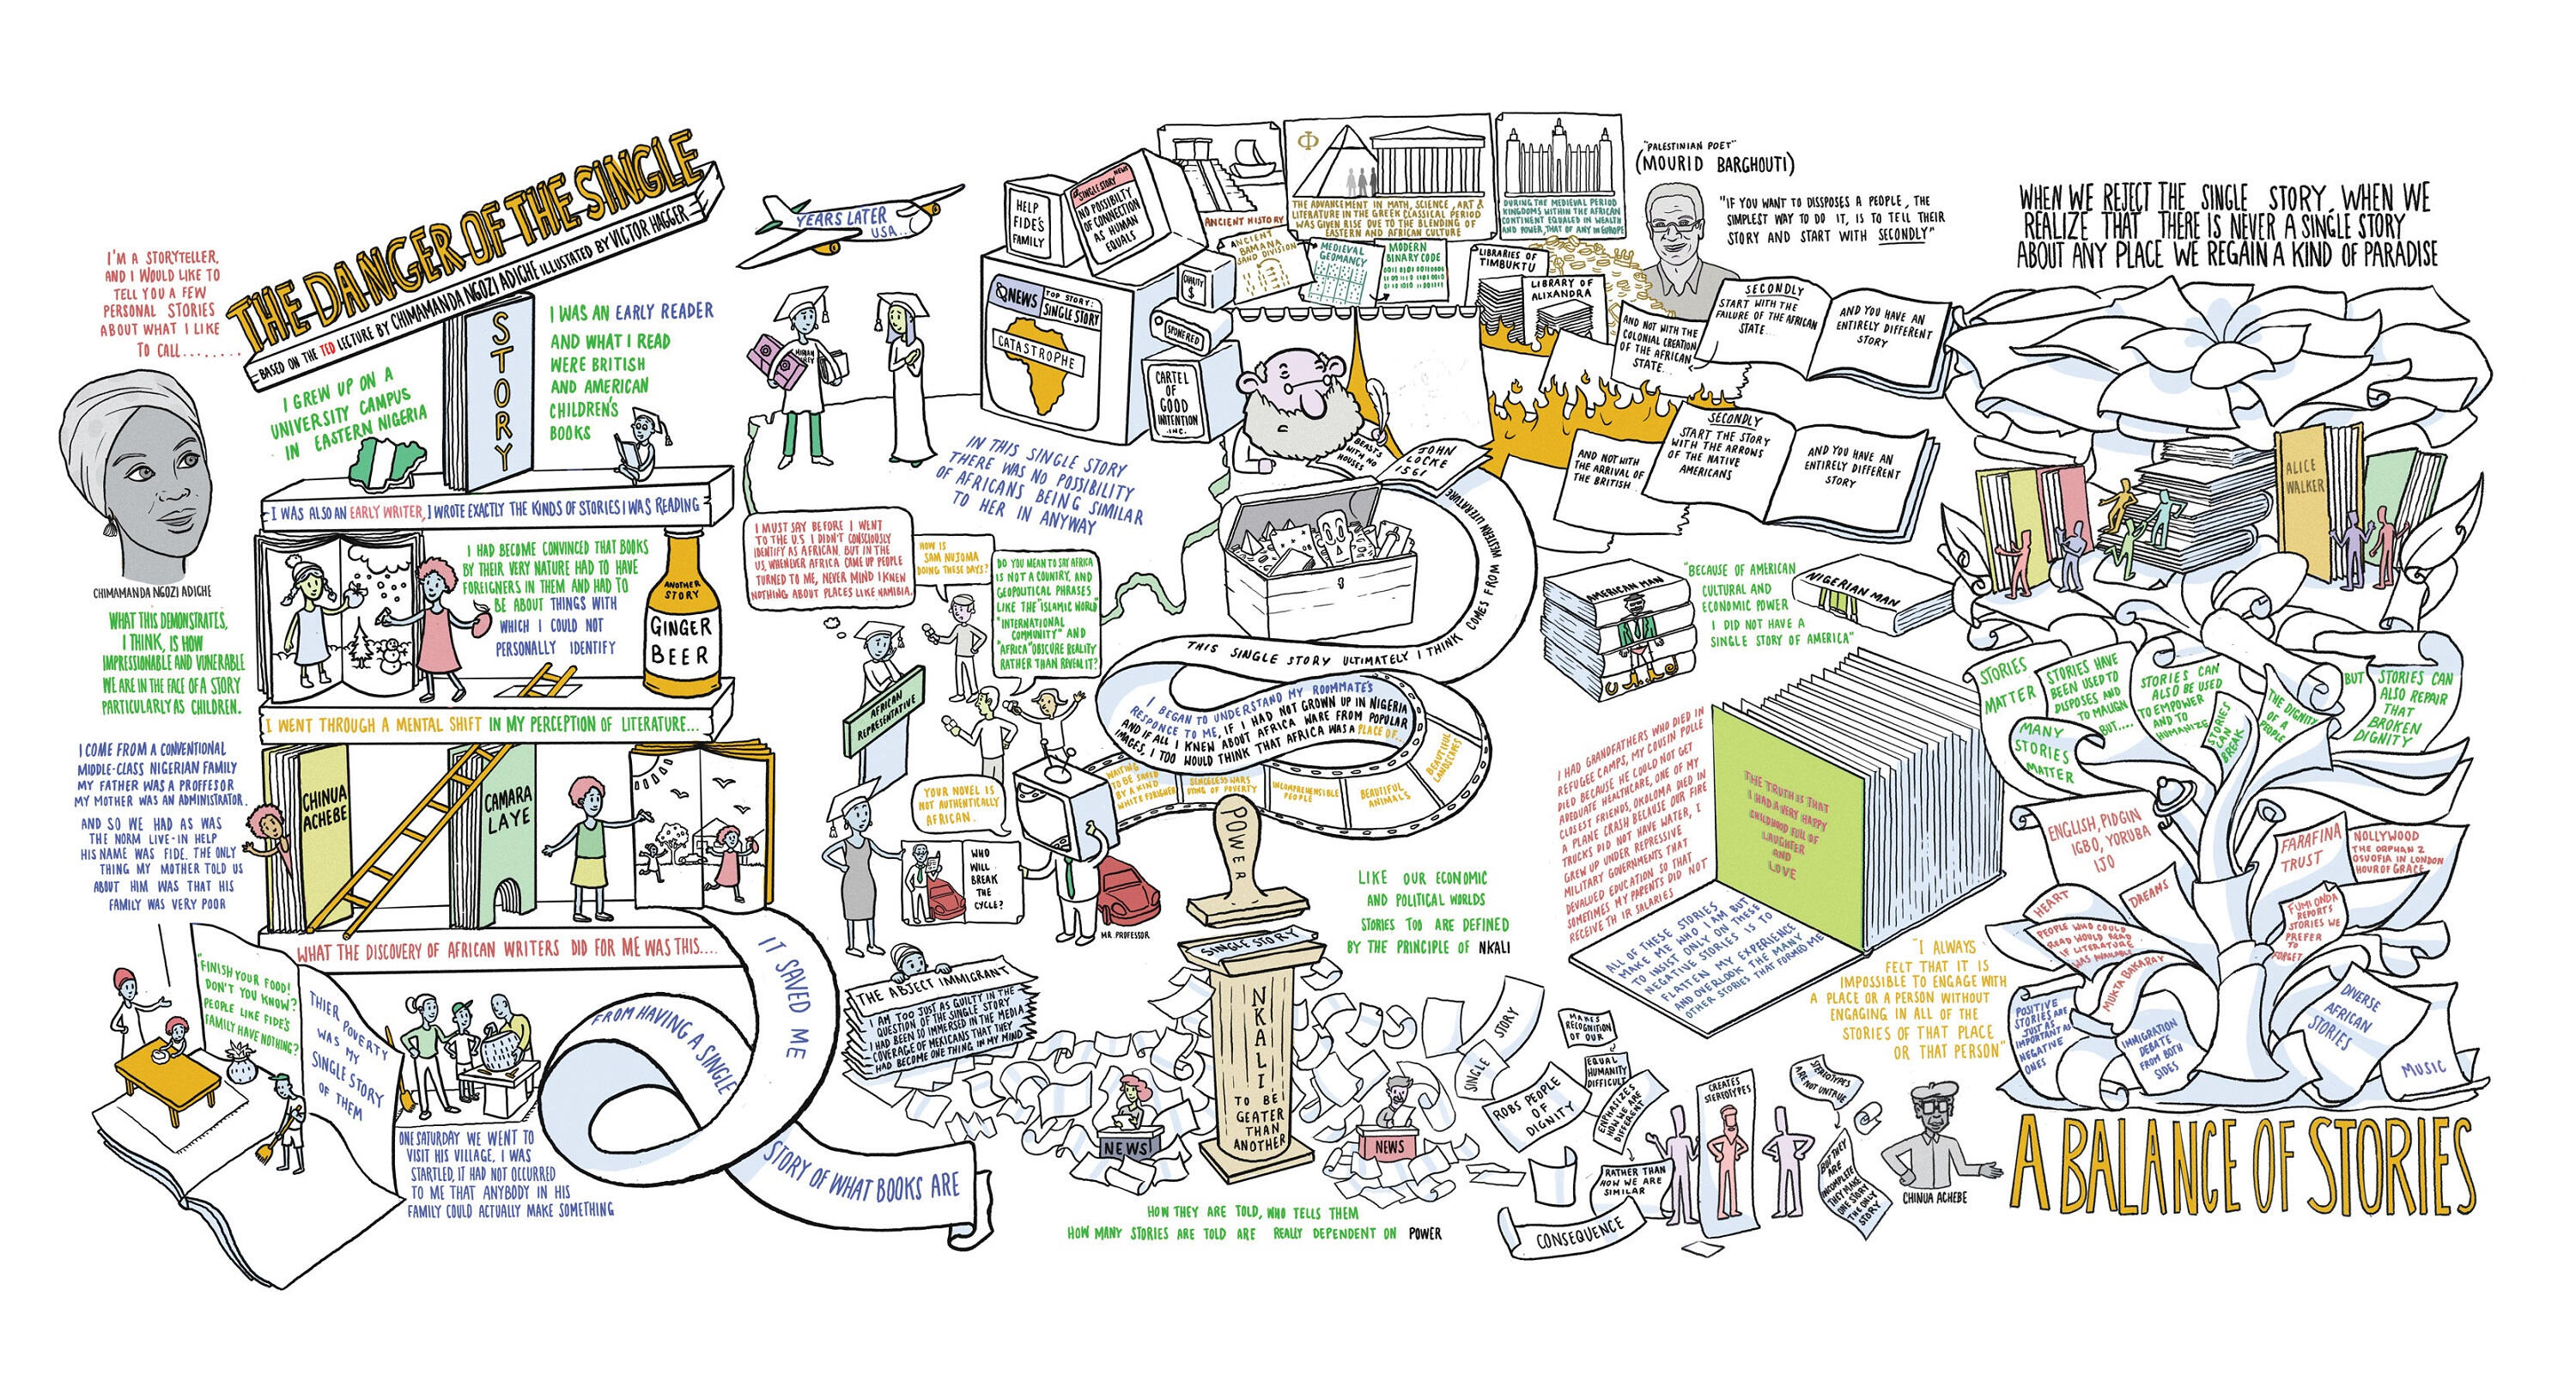 I'M A STORYTELLER,
AND I WOULD LIKE TO
TELL YOU A FEW
PERSONAL STORIES
ABOUT WHAT I LIKE
TO CALL........
THE DANGER OF THE SINGLE
BASED ON THE TED LECTURE BY CHIMAMANDA NGOZI ADICHE ILLUSTRATED BY VICTOR HAGGER
STORY
I GREW UP ON A
UNIVERSITY CAMPUS
IN EASTERN NIGERIA
I WAS AN EARLY READER
AND WHAT I READ
WERE BRITISH
AND AMERICAN
CHILDREN'S
BOOKS
CHIMAMANDA NGOZI ADICHE
I WAS ALSO AN EARLY WRITER, I WROTE EXACTLY THE KINDS OF STORIES I WAS READING
I HAD BECOME CONVINCED THAT BOOKS
BY THEIR VERY NATURE HAD TO HAVE
FOREIGNERS IN THEM AND HAD TO
BE ABOUT THINGS WITH
WHICH I COULD NOT
PERSONALLY IDENTIFY
ANOTHER
STORY
GINGER
BEER
WHAT THIS DEMONSTRATES,
I THINK, IS HOW
IMPRESSIONABLE AND VUNERABLE
WE ARE IN THE FACE OF A STORY
PARTICULARLY AS CHILDREN.
I WENT THROUGH A MENTAL SHIFT IN MY PERCEPTION OF LITERATURE...
CHINUA
ACHEBE
CAMARA
LAYE
I COME FROM A CONVENTIONAL
MIDDLE-CLASS NIGERIAN FAMILY
MY FATHER WAS A PROFFESOR
MY MOTHER WAS AN ADMINISTRATOR.
AND SO WE HAD AS WAS
THE NORM LIVE-IN HELP
HIS NAME WAS FIDE. THE ONLY
THING MY MOTHER TOLD US
ABOUT HIM WAS THAT HIS
FAMILY WAS VERY POOR
WHAT THE DISCOVERY OF AFRICAN WRITERS DID FOR ME WAS THIS....
IT SAVED ME
FROM HAVING A SINGLE
STORY OF WHAT BOOKS ARE
"FINISH YOUR FOOD!
DON'T YOU KNOW?
PEOPLE LIKE FIDE'S
FAMILY HAVE NOTHING?
THIER POVERTY
WAS MY
SINGLE STORY
OF THEM
ONE SATURDAY WE WENT TO
VISIT HIS VILLAGE, I WAS
STARTLED, IT HAD NOT OCCURRED
TO ME THAT ANYBODY IN HIS
FAMILY COULD ACTUALLY MAKE SOMETHING
YEARS LATER
USA...
HELP
FIDE'S
FAMILY
SINGLE STORY
NEWS
NO POSSIBILTY
OF CONNECTION
AS HUMAN
EQUALS
NEWS
TOP STORY:
SINGLE STORY
CATASTROPHE
CHARITY
$
SPONSRED
CARTEL
OF
GOOD
INTENTION
.INC.
IN THIS SINGLE STORY
THERE WAS NO POSSIBILITY
OF AFRICANS BEING SIMILAR
TO HER IN ANYWAY
ANCIENT HISTORY
THE ADVANCEMENT IN MATH, SCIENCE, ART &
LITERATURE IN THE GREEK CLASSICAL PERIOD
WAS GIVEN RISE DUE TO THE BLENDING OF
EASTERN AND AFRICAN CULTURE
DURING THE MEDIEVAL PERIOD
KINGDOMS WITHIN THE AFRICAN
CONTINENT EQUALED IN WEALTH
AND POWER, THAT OF ANY IN EUROPE
ANCIENT
BAMANA
SAND DIVISION
MEDIEVAL
GEOMANCY
MODERN
BINARY CODE
LIBRARIES OF
TIMBUKTU
LIBRARY OF
ALIXANDRA
"PALESTINIAN POET"
(MOURID BARGHOUTI)
"IF YOU WANT TO DISSPOSES A PEOPLE, THE
SIMPLEST WAY TO DO IT, IS TO TELL THEIR
STORY AND START WITH SECONDLY"
SECONDLY
START WITH THE
FAILURE OF THE AFRICAN
STATE...
AND YOU HAVE AN
ENTIRELY DIFFERENT
STORY
AND NOT WITH THE
COLONIAL CREATION
OF THE AFRICAN
STATE...
SECONDLY
START THE STORY
WITH THE ARROWS
OF THE NATIVE
AMERICANS
AND YOU HAVE AN
ENTIRELY DIFFERENT
STORY
AND NOT WITH
THE ARRIVAL OF
THE BRITISH
BEASTS
WITH NO
HOUSES
JOHN
LOCKE
1561
THIS SINGLE STORY ULTIMATELY I THINK COMES FROM WESTERN LITERATURE
I MUST SAY BEFORE I WENT
TO THE U.S I DIDN'T CONSCIOUSLY
IDENTIFY AS AFRICAN. BUT IN THE
US, WHENEVER AFRICA CAME UP PEOPLE
TURNED TO ME, NEVER MIND I KNEW
NOTHING ABOUT PLACES LIKE NAMIBIA.
HOW IS
SAM NUJOMA
DOING THESE DAYS?
DO YOU MEAN TO SAY AFRICA
IS NOT A COUNTRY, AND
GEOPOLITICAL PHRASES
LIKE THE "ISLAMIC WORLD"
"INTERNATIONAL
COMMUNITY" AND
"AFRICA" OBSCURE REALITY
RATHER THAN REVEAL IT?
AFRICAN
REPRESENTATIVE
I BEGAN TO UNDERSTAND MY ROOMMATE'S
RESPONCE TO ME, IF I HAD NOT GROWN UP IN NIGERIA
AND IF ALL I KNEW ABOUT AFRICA WARE FROM POPULAR
IMAGES, I TOO WOULD THINK THAT AFRICA WAS A PLACE OF..
WAITING
TO BE SAVED
BY A KIND
WHITE FORIGNER
SENCELESS WARS
DYING OF POVERTY
INCOMPREHENSIBLE
PEOPLE
BEAUTIFUL
ANIMALS
BEAUTIFUL
LANDSCAPES
YOUR NOVEL IS
NOT AUTHENTICALLY
AFRICAN.
WHO
WILL
BREAK
THE
CYCLE?
MR PROFESSOR
THE ABJECT IMMIGRANT
I AM TOO JUST AS GUILTY IN THE
QUESTION OF THE SINGLE STORY
I HAD BEEN SO IMMERSED IN THE MEDIA
COVERAGE OF MEXICANS THAT THEY
HAD BECOME ONE THING IN MY MIND
POWER
SINGLE STORY
NKALI
TO BE
GEATER
THAN
ANOTHER
NEWS!
NEWS
LIKE OUR ECONOMIC
AND POLITICAL WORLDS
STORIES TOO ARE DEFINED
BY THE PRINCIPLE OF NKALI
HOW THEY ARE TOLD, WHO TELLS THEM
HOW MANY STORIES ARE TOLD ARE REALLY DEPENDENT ON POWER
AMERICAN MAN
"BECAUSE OF AMERICAN
CULTURAL AND
ECONOMIC POWER
I DID NOT HAVE A
SINGLE STORY OF AMERICA"
NIGERIAN MAN
I HAD GRANDFATHERS WHO DIED IN
REFUGEE CAMPS, MY COUSIN POLLE
DIED BECAUSE HE COULD NOT GET
ADEQUATE HEALTHCARE, ONE OF MY
CLOSEST FRIENDS, OKOLOMA DIED IN
A PLANE CRASH BECAUSE OUR FIRE
TRUCKS DID NOT HAVE WATER, I
GREW UP UNDER REPRESSIVE
MILITARY GOVERNMENTS THAT
DEVALUED EDUCATION SO THAT
SOMETIMES MY PARENTS DID NOT
RECEIVE TH IR SALARIES
THE TRUTH IS THAT
I HAD A VERY HAPPY
CHILDHOOD FULL OF
LAUGHTER
AND
LOVE
ALL OF THESE STORIES
MAKE ME WHO I AM, BUT
TO INSIST ONLY ON THESE
NEGATIVE STORIES IS TO
FLATTEN MY EXPERIENCE
AND OVERLOOK THE MANY
OTHER STORIES THAT FORMED ME
"I ALWAYS
FELT THAT IT IS
IMPOSSIBLE TO ENGAGE WITH
A PLACE OR A PERSON WITHOUT
ENGAGING IN ALL OF THE
STORIES OF THAT PLACE
OR THAT PERSON"
SINGLE STORY
ROBS PEOPLE
OF
DIGNITY
MAKES
RECOGNITION
OF OUR
EQUAL
HUMANITY
DIFFICULT
EMPHASIZES
HOW WE ARE
DIFFERENT
RATHER THAN
HOW WE ARE
SIMILAR
CONSEQUENCE
CREATES
STEREOTYPES
STEREOTYPES
ARE NOT UNTRUE
BUT THEY
ARE
INCOMPLETE
THEY MAKE
ONE STORY
THE ONLY
STORY
CHINUA ACHEBE
WHEN WE REJECT THE SINGLE STORY, WHEN WE
REALIZE THAT THERE IS NEVER A SINGLE STORY
ABOUT ANY PLACE WE REGAIN A KIND OF PARADISE
ALICE
WALKER
STORIES
MATTER
MANY
STORIES
MATTER
STORIES HAVE
BEEN USED TO
DISPOSES AND
TO MALIGN
BUT....
STORIES CAN
ALSO BE USED
TO EMPOWER
AND TO
HUMANIZE
STORIES
CAN
BREAK
THE DIGNITY
OF A
PEOPLE
BUT
STORIES CAN
ALSO REPAIR
THAT
BROKEN
DIGNITY
ENGLISH, PIDGIN
IGBO, YORUBA
IJO
FARAFINA
TRUST
NOLLYWOOD
THE ORPHAN 2
OSUOFIA IN LONDON
HOUR OF GRACE
HEART
DREAMS
PEOPLE WHO COULD
READ WOULD READ
IF LITERATURE
WAS AVAILABLE
MUKTA BAKARAY
FUMI ONDA
REPORTS
STORIES WE
PREFER
TO
FORGET
POSITIVE
STORIES ARE
JUST AS
IMPORTANT AS
NEGATIVE
ONES
IMMIGRATION
DEBATE
FROM BOTH
SIDES
DIVERSE
AFRICAN
STORIES
MUSIC
A BALANCE OF STORIES